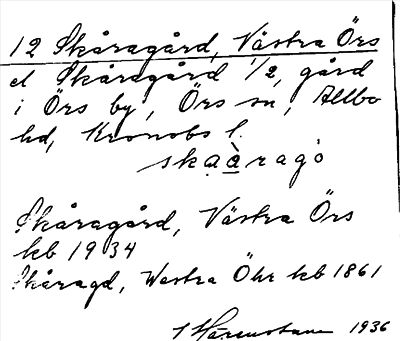 12 Skåragård, Västra Örs
el Skåragård 1/2, gård
i Örs by, Örs sn, Allbo
hd, Kronobs l.
skaàragò
Skåragård, Västra Örs
kb 1934
Skåragd, Westra Öhr kb 1861
1936